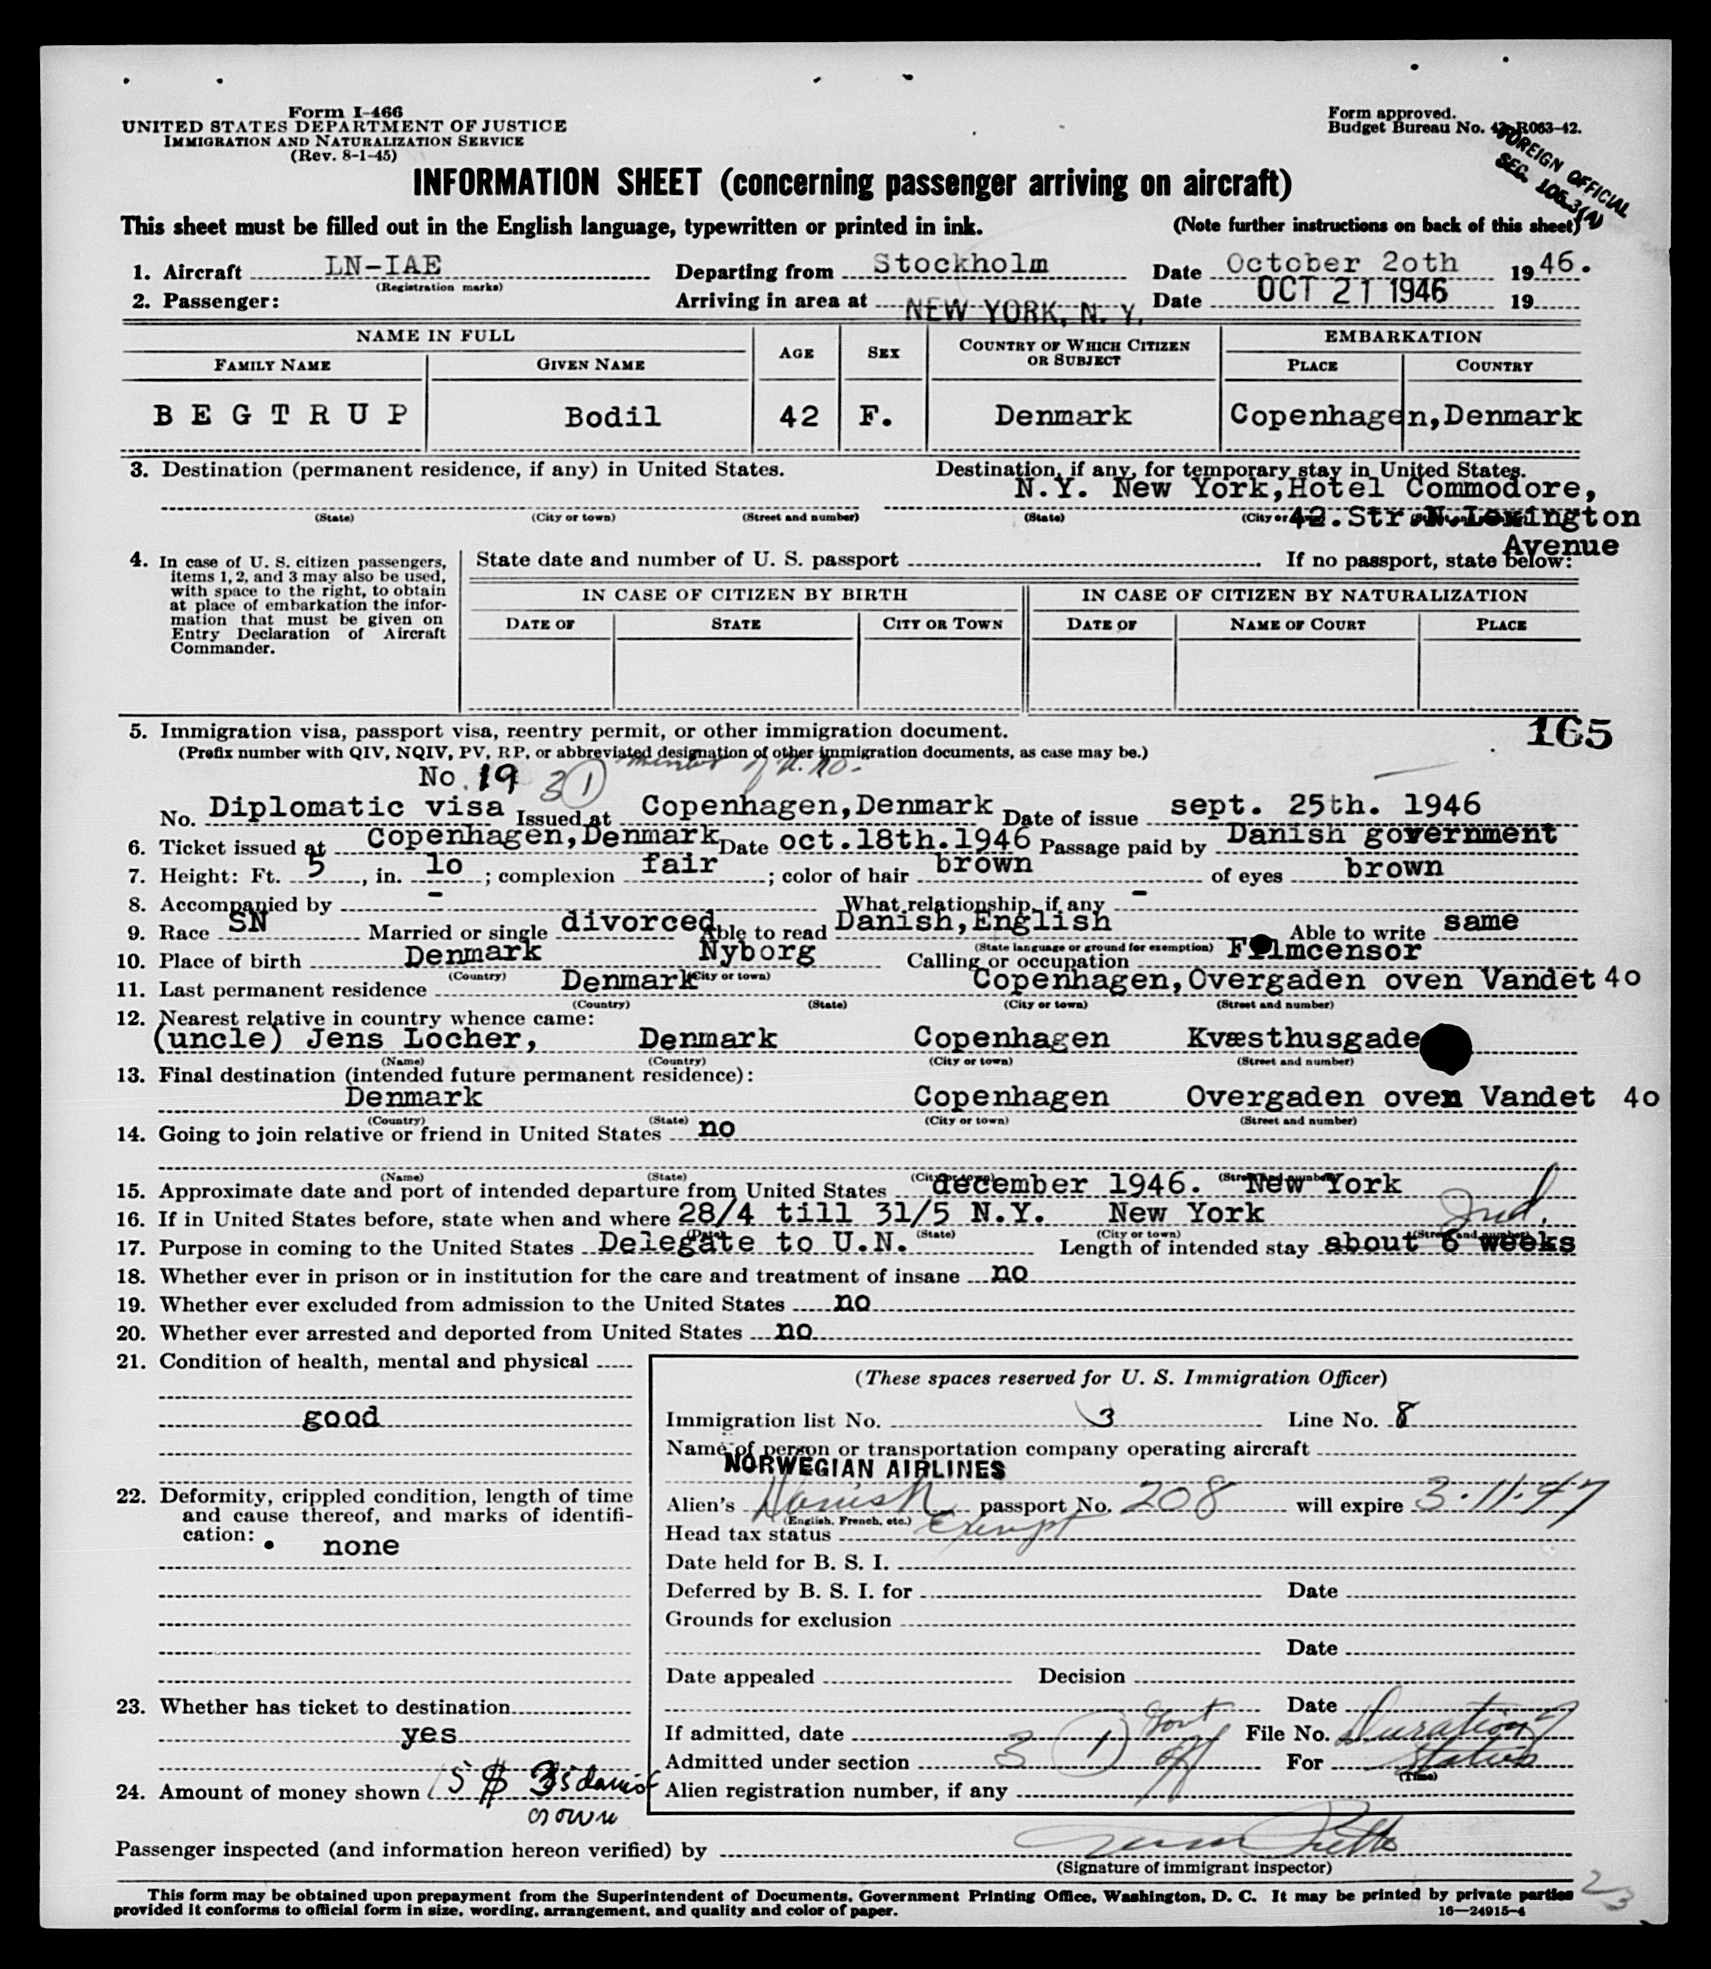 Form I-466
UNITED STATES DEPARTMENT OF JUSTICE
IMMIGRATION AND NATURALIZATION SERVICE
(Rev. 8-1-45)
Form approved.
Budget Bureau No. 43-R063-42.
FOREIGN OFFICIAL
SEC. 105.3(A)
INFORMATION SHEET (concerning passenger arriving on aircraft)
This sheet must be filled out in the English language, typewritten or printed in ink. (Note further instructions on back of this sheet)
1. Aircraft LN-IAE Departing from Stockholm Date October 2oth 1946.
(Registration marks)
2. Passenger: Arriving in area at NEW YORK, N. Y. Date OCT 21 1946 19
NAME IN FULL AGE SEX COUNTRY OF WHICH CITIZEN OR SUBJECT EMBARKATION
FAMILY NAME GIVEN NAME PLACE COUNTRY
BEGTRUP Bodil 42 F. Denmark Copenhagen,Denmark
3. Destination (permanent residence, if any) in United States. Destination, if any, for temporary stay in United States.
N.Y. New York,Hotel Commodore,
(State) (City or town) (Street and number) (State) (City or 42.Str.N.Lexington
Avenue
4. In case of U. S. citizen passengers, items 1, 2, and 3 may also be used, with space to the right, to obtain at place of embarkation the information that must be given on Entry Declaration of Aircraft Commander.
State date and number of U. S. passport If no passport, state below:
IN CASE OF CITIZEN BY BIRTH IN CASE OF CITIZEN BY NATURALIZATION
DATE OF STATE CITY OR TOWN DATE OF NAME OF COURT PLACE
5. Immigration visa, passport visa, reentry permit, or other immigration document. 165
(Prefix number with QIV, NQIV, PV, RP, or abbreviated designation of other immigration documents, as case may be.)
No. 19 3 (1) member of U.N.O.
No. Diplomatic visa Issued at Copenhagen,Denmark Date of issue sept. 25th. 1946
6. Ticket issued at Copenhagen,Denmark Date oct.18th.1946 Passage paid by Danish government
7. Height: Ft. 5, in. 1o; complexion fair; color of hair brown of eyes brown
8. Accompanied by - What relationship, if any -
9. Race SN Married or single divorced Able to read Danish,English Able to write same
(State language or ground for exemption)
10. Place of birth Denmark Nyborg Calling or occupation Filmcensor
(Country) (City or town)
11. Last permanent residence Denmark Copenhagen,Overgaden oven Vandet 4o
(Country) (State) (City or town) (Street and number)
12. Nearest relative in country whence came:
(uncle) Jens Locher, Denmark Copenhagen Kvæsthusgade
(Name) (Country) (City or town) (Street and number)
13. Final destination (intended future permanent residence):
Denmark Copenhagen Overgaden oven Vandet 4o
(Country) (State) (City or town) (Street and number)
14. Going to join relative or friend in United States no
(Name) (State) (City or town) (Street and number)
15. Approximate date and port of intended departure from United States december 1946. New York
16. If in United States before, state when and where 28/4 till 31/5 N.Y. New York
(Date) (State) (City or town) (Street and number)
17. Purpose in coming to the United States Delegate to U.N. Length of intended stay about 6 weeks
18. Whether ever in prison or in institution for the care and treatment of insane no
19. Whether ever excluded from admission to the United States no
20. Whether ever arrested and deported from United States no
21. Condition of health, mental and physical
good
22. Deformity, crippled condition, length of time and cause thereof, and marks of identification:
none
23. Whether has ticket to destination
yes
24. Amount of money shown 15 $ 35 danish
crown
(These spaces reserved for U. S. Immigration Officer)
Immigration list No. 3 Line No. 8
Name of person or transportation company operating aircraft
NORWEGIAN AIRLINES
Alien's Danish passport No. 208 will expire 3.11.47
(English, French, etc.)
Head tax status Exempt
Date held for B. S. I.
Deferred by B. S. I. for Date
Grounds for exclusion
Date
Date appealed Decision
Date
If admitted, date File No.
Admitted under section 3 (1) Govt off For Duration of Status
(Time)
Alien registration number, if any
Passenger inspected (and information hereon verified) by
(Signature of immigrant inspector)
23
This form may be obtained upon prepayment from the Superintendent of Documents, Government Printing Office, Washington, D. C. It may be printed by private parties
provided it conforms to official form in size, wording, arrangement, and quality and color of paper.
16—24915-4